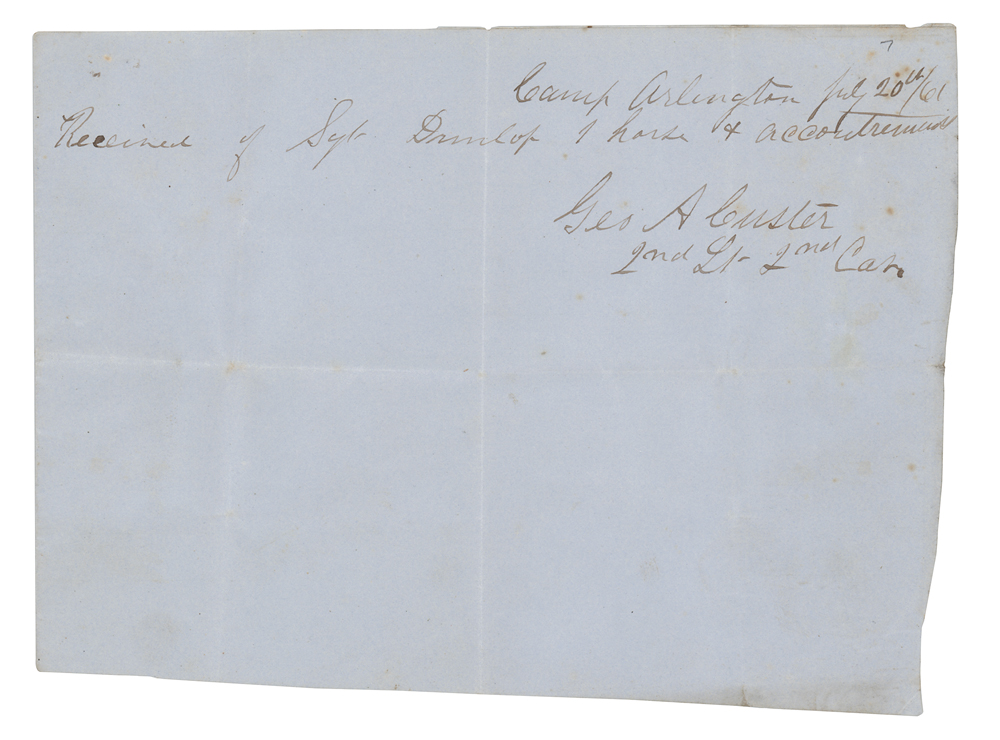 Camp Arlington July 20th/61
Received of Sgt Dunlop 1 horse & accoutrements
Geo A Custer
2nd Lt 2nd Cav.